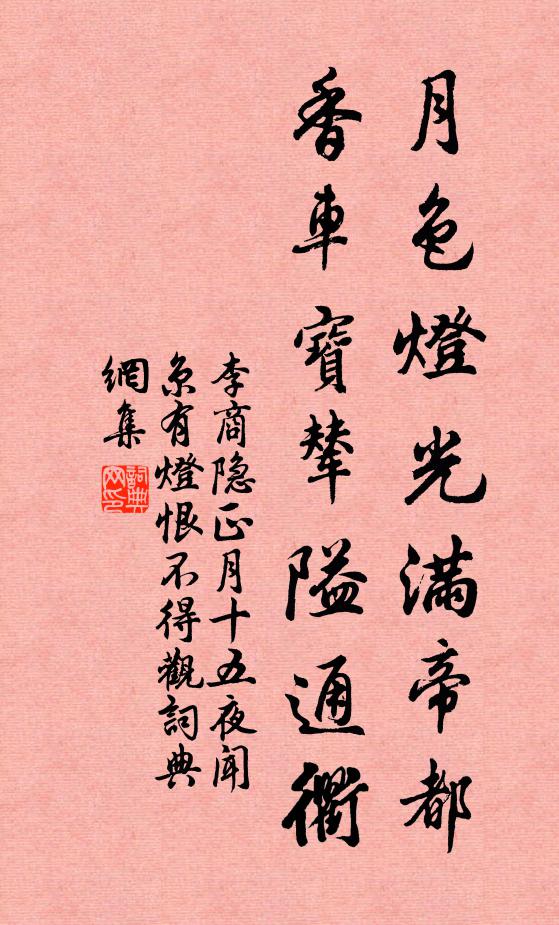 月色燈光滿帝都
香車寶輦隘通衢
李商隐正月十五夜聞
京有燈恨不得觀詞典
網集
詞典
网印